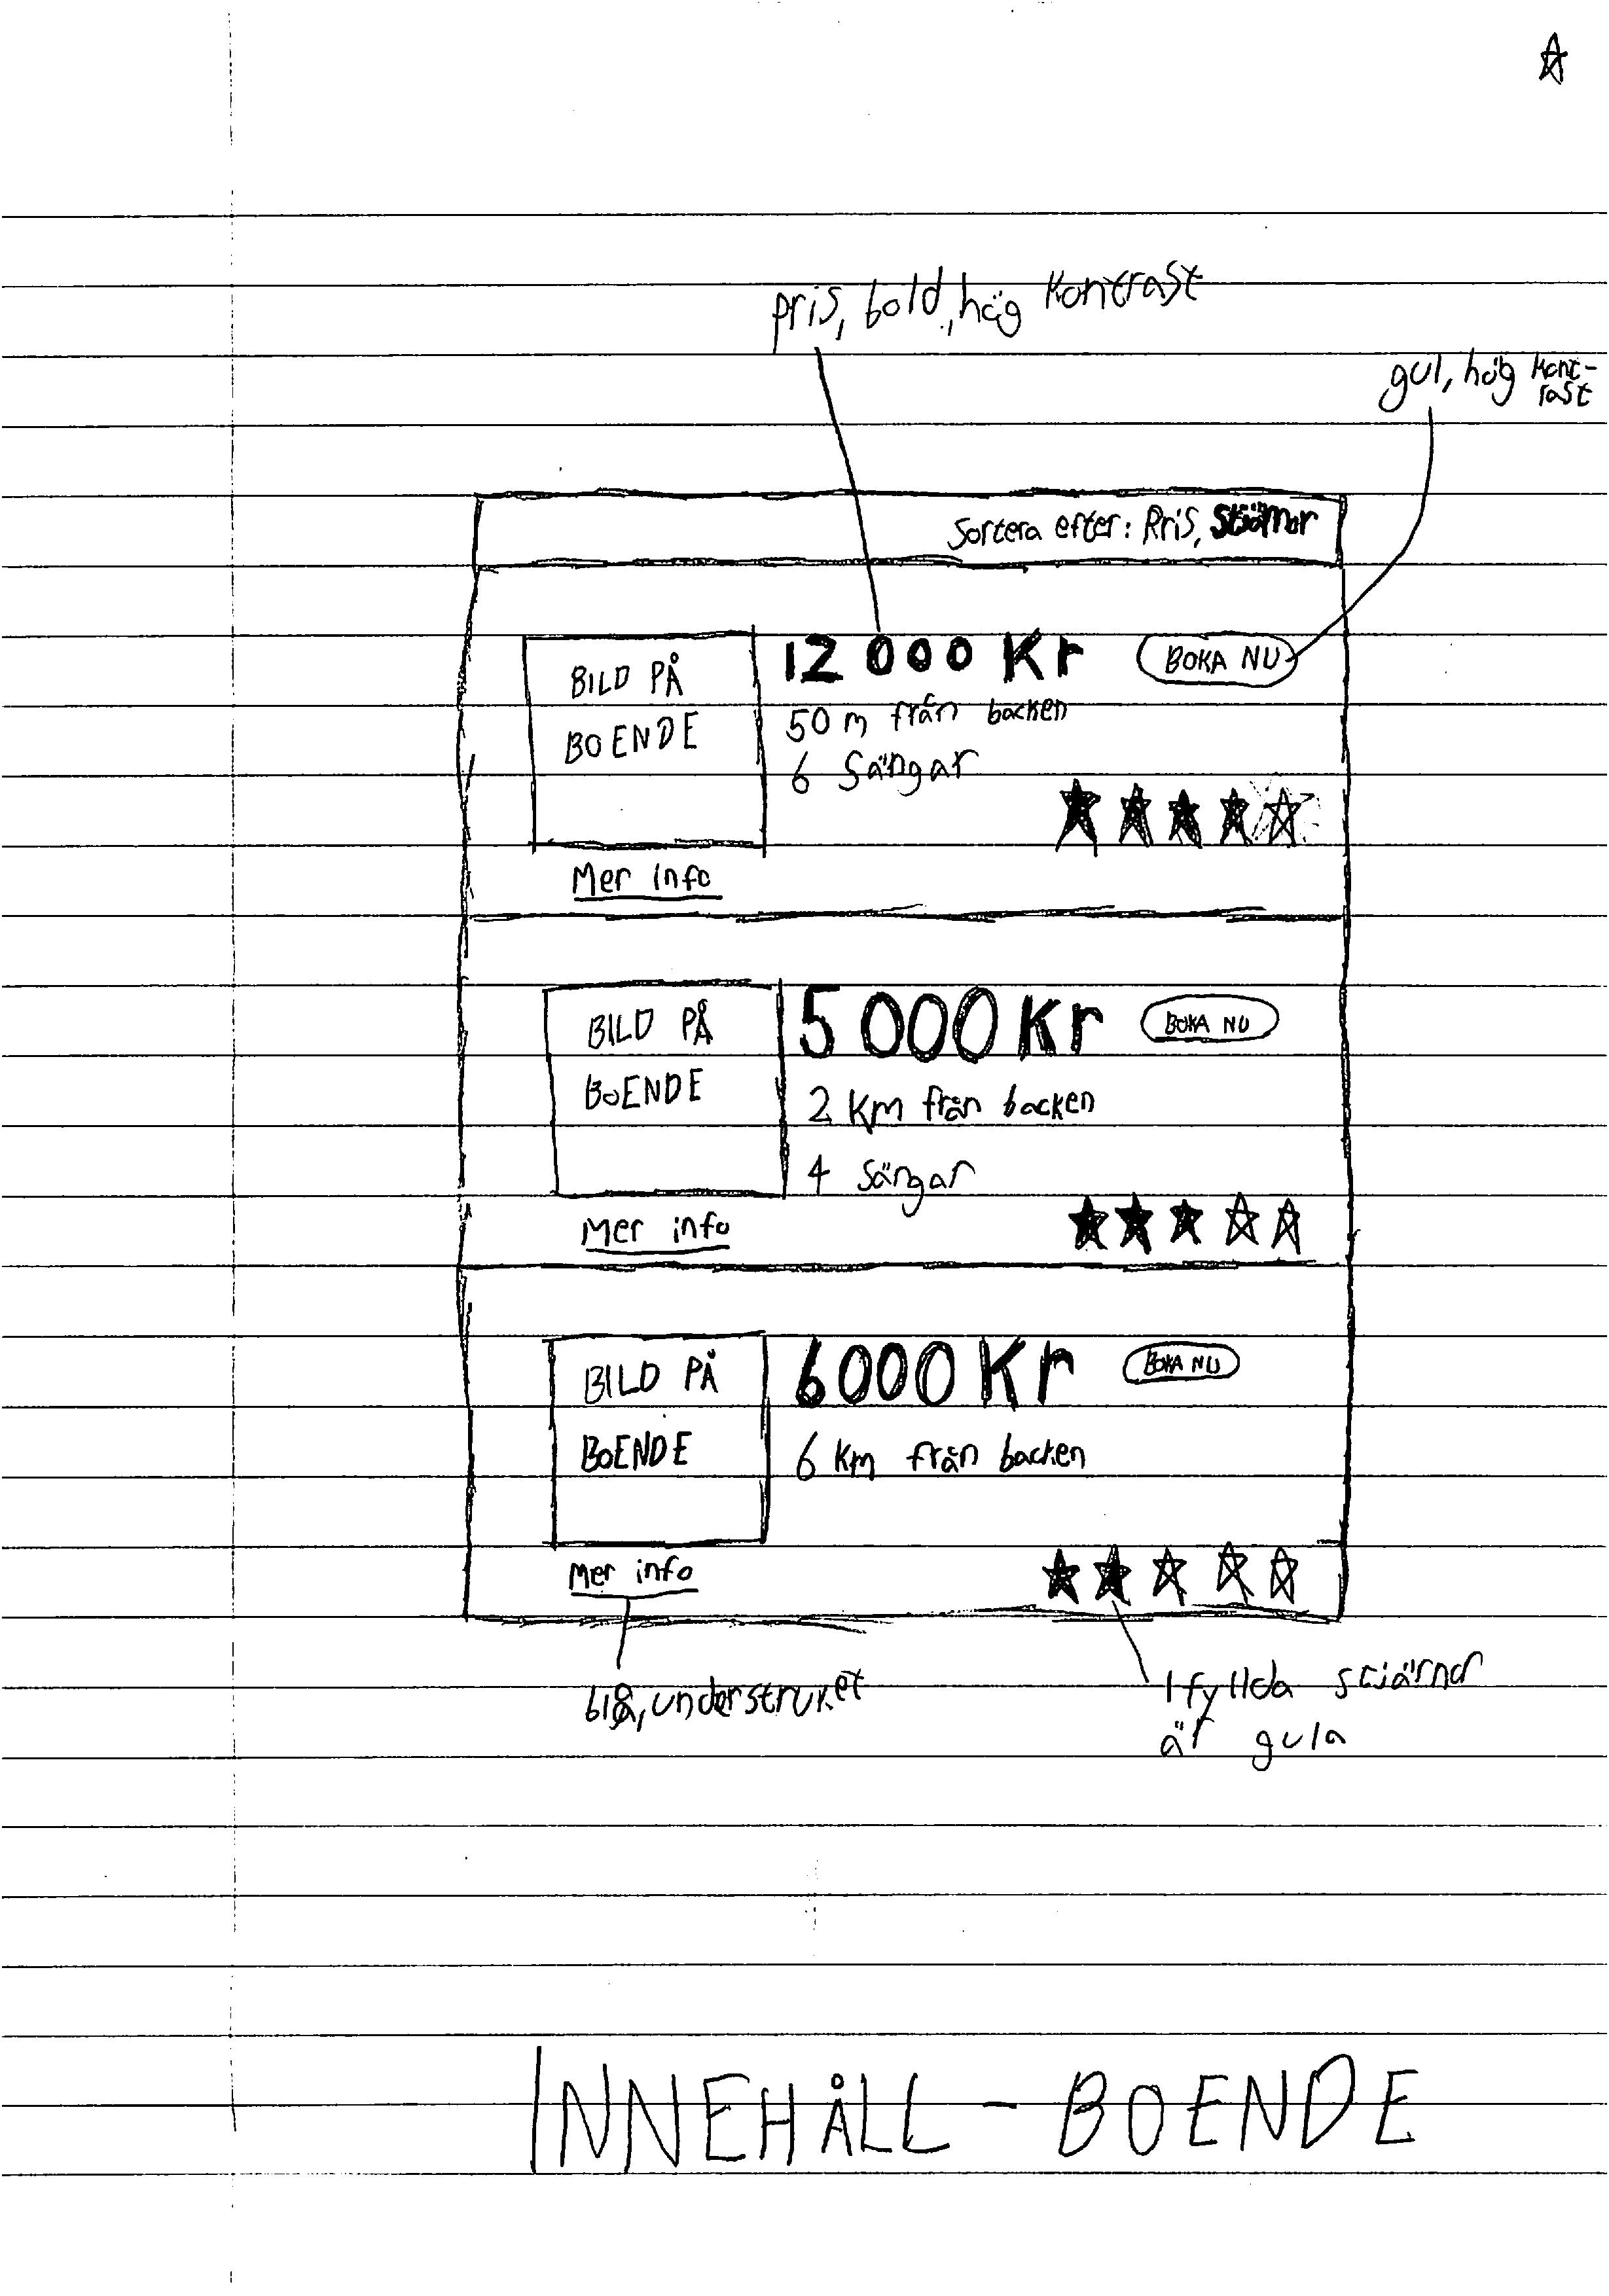 pris, bold, hög kontrast
gul, hög kont-
rast
Sortera efter: Pris, Stjärnor
BILD PÅ
BOENDE
12 000 Kr
BOKA NU
50 m från backen
6 Sängar
Mer info
BILD PÅ
BOENDE
5 000 Kr
BOKA NU
2 Km från backen
4 Sängar
Mer info
BILD PÅ
BOENDE
6000 Kr
BOKA NU
6 Km från backen
Mer info
blå, understruket
Ifyllda stjärnor
är gula
INNEHÅLL - BOENDE